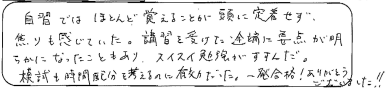 自習ではほとんど覚えることが頭に定着せず、
焦りも感じていた。講習を受けた途端に要点が明
らかになったこともあり、スイスイ勉強がすすんだ。
模試も時間配分を考えるのに有効だった。一発合格!ありがとう
ございました!!